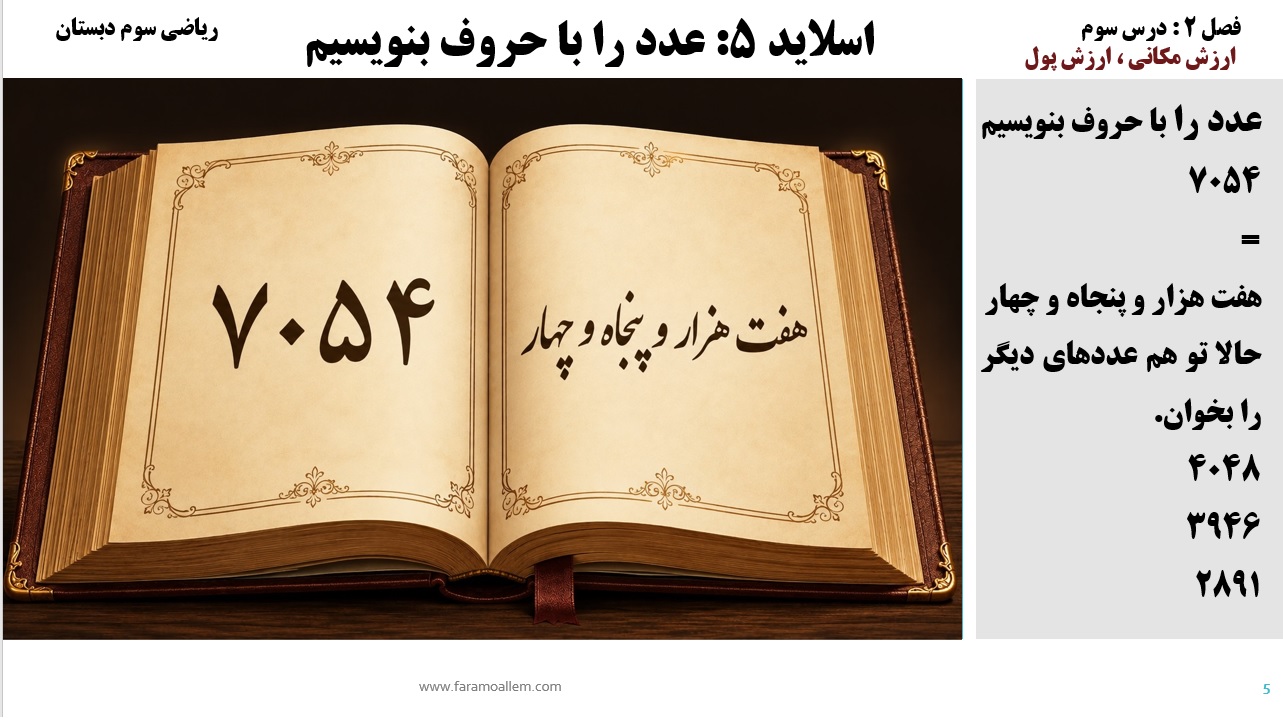 فصل ۲ : درس سوم
ارزش مکانی ، ارزش پول
اسلاید ۵: عدد را با حروف بنویسیم
ریاضی سوم دبستان
عدد را با حروف بنویسیم
۷۰۵۴
=
هفت هزار و پنجاه و چهار
حالا تو هم عددهای دیگر
را بخوان.
۴۰۴۸
۳۹۴۶
۲۸۹۱
هفت هزار و پنجاه و چهار
۷۰۵۴
www.faramoallem.com
5